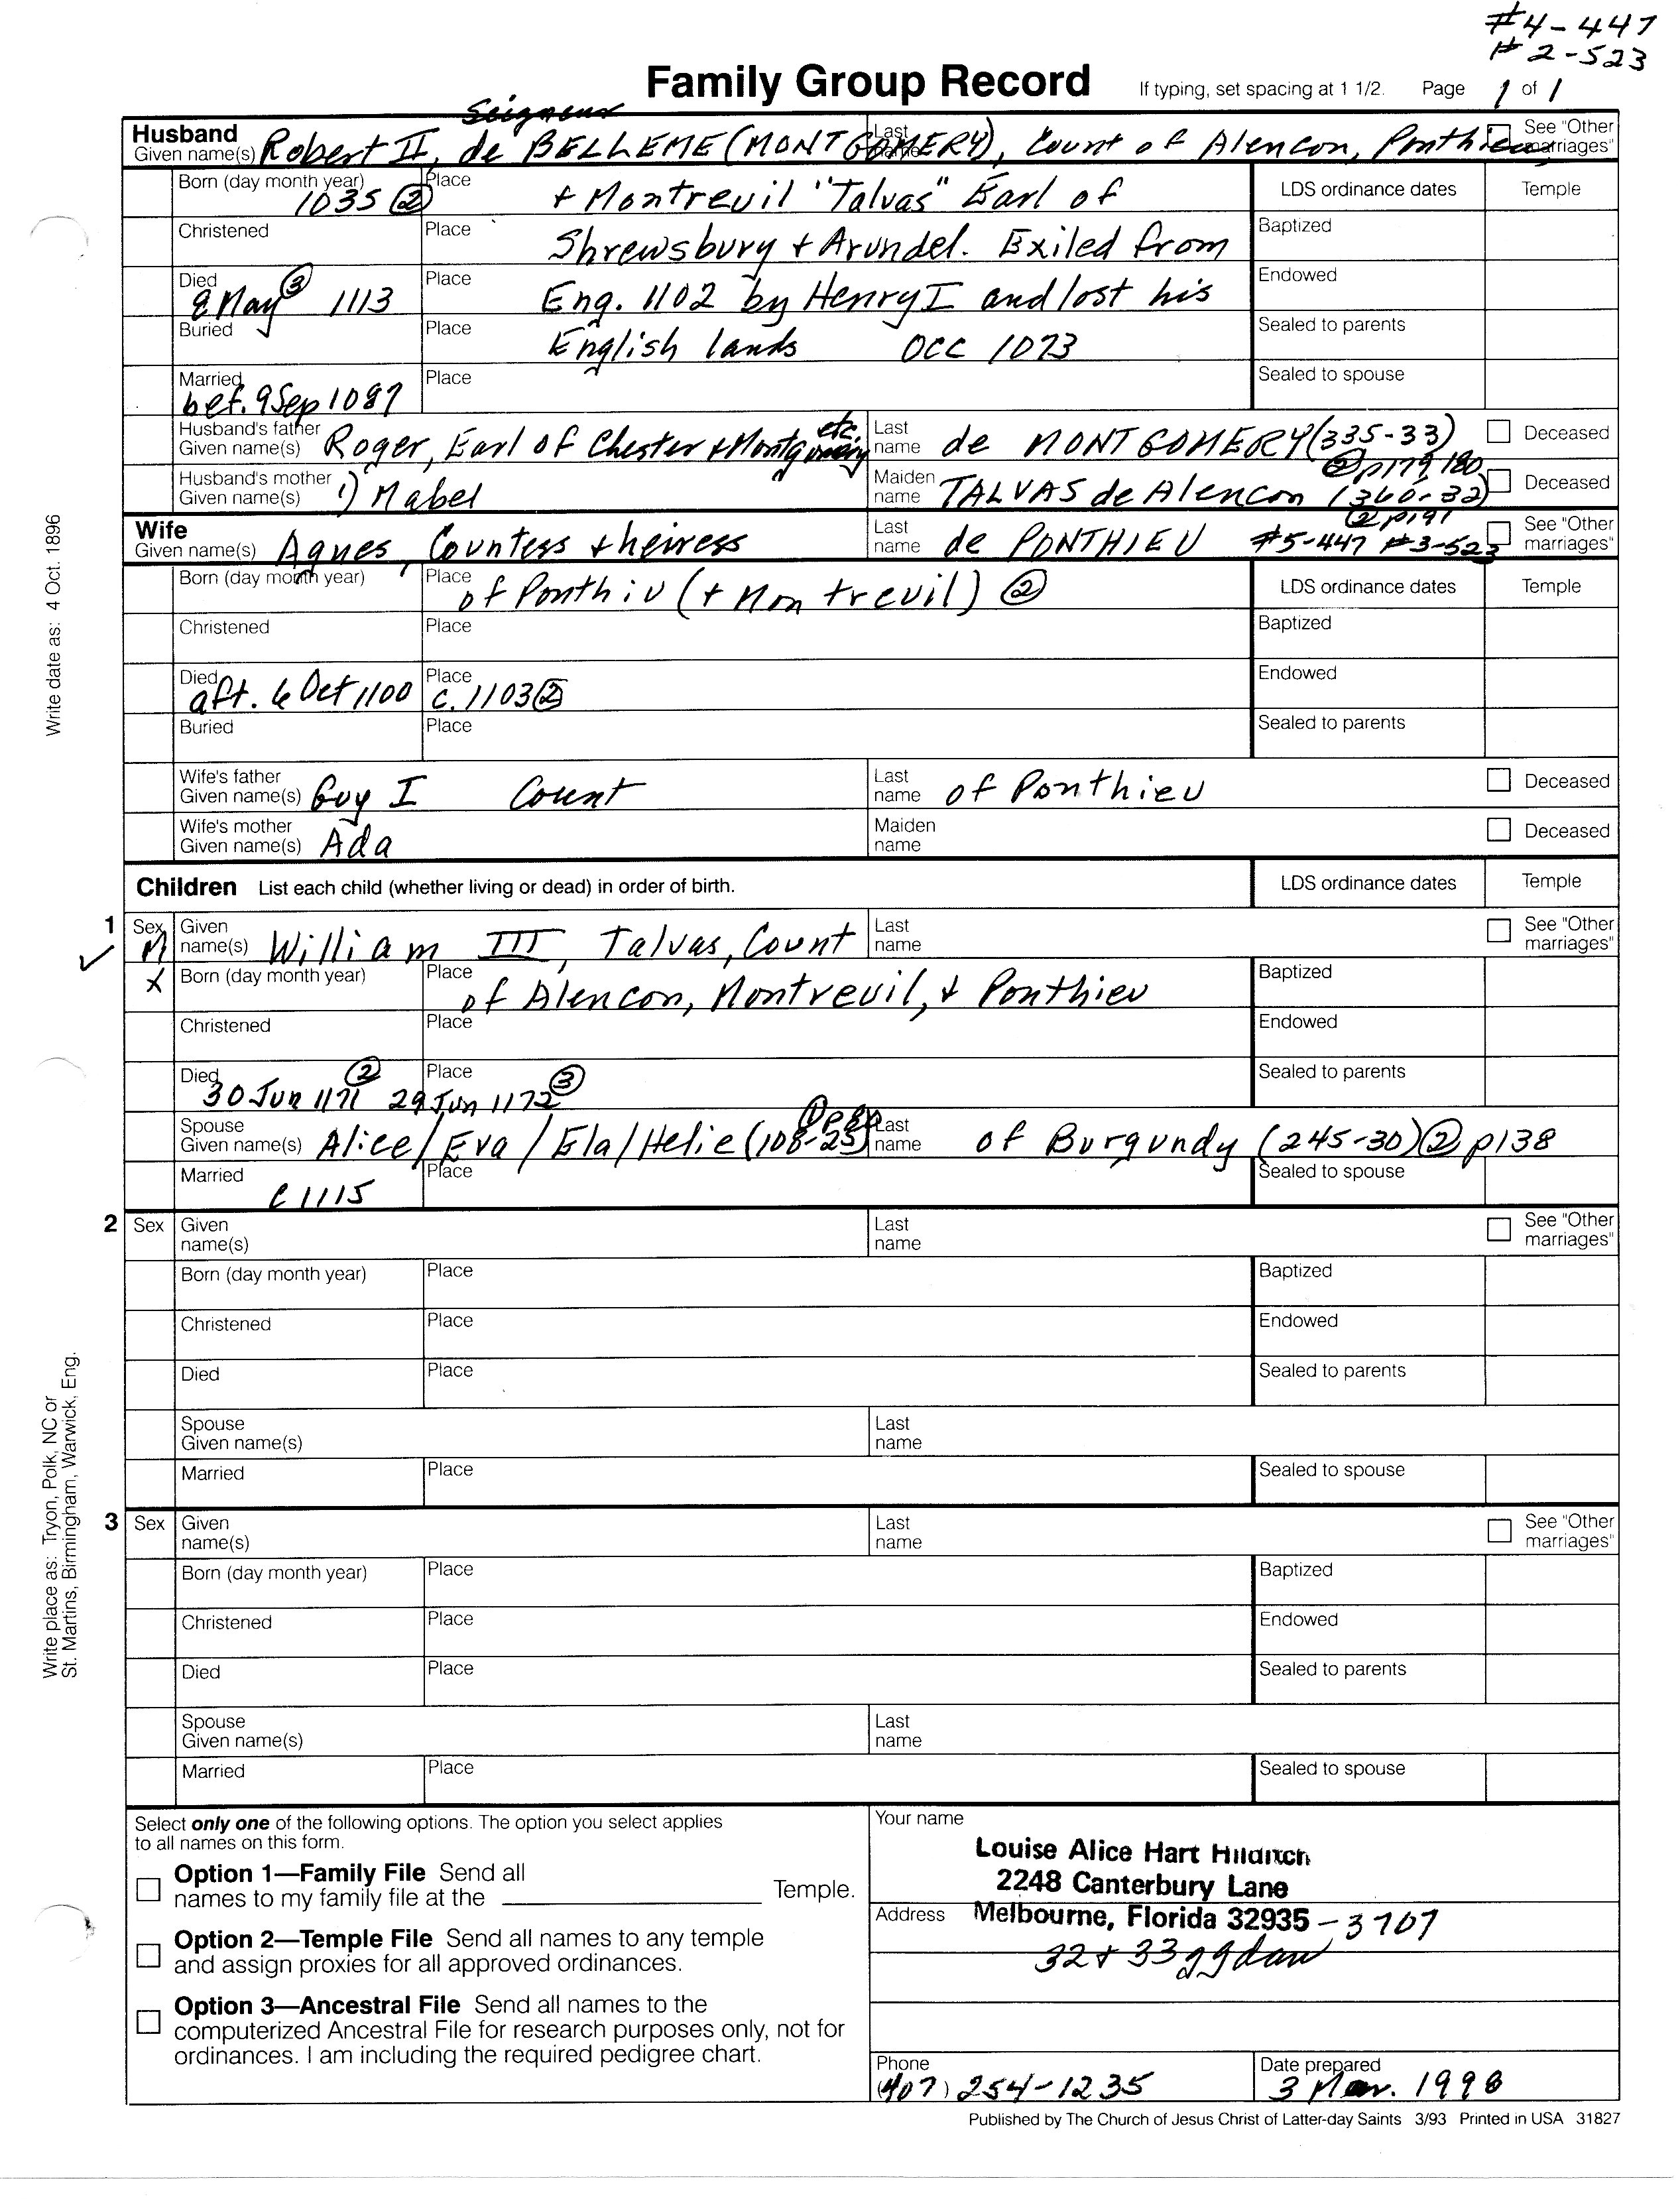 #4-447
#2-523
Family Group Record If typing, set spacing at 1 1/2. Page 1 of 1
Seigneur
Husband Last See "Other
Given name(s) Robert II, de BELLEME (MONTGOMERY), Count of Alencon, Ponthieu, name marriages"
Born (day month year) 1035 ② Place + Montreuil "Talvas" Earl of LDS ordinance dates Temple
Christened Place Shrewsbury + Arundel. Exiled from Baptized
Died 8 May ③ 1113 Place Eng. 1102 by Henry I and lost his Endowed
Buried Place English lands OCC 1073 Sealed to parents
Married bef. 9 Sep 1087 Place Sealed to spouse
Husband's father
Given name(s) Roger, Earl of Chester + Montgomery etc. Last name de MONTGOMERY (335-33) Deceased
② p179, 180
Husband's mother
Given name(s) 1) Mabel Maiden name TALVAS de Alencon (360-32) Deceased
② p191
Wife
Given name(s) Agnes, Countess + heiress Last name de PONTHIEU #5-447 #3-523 See "Other marriages"
Born (day month year) Place of Ponthiu (+ Montreuil) ② LDS ordinance dates Temple
Christened Place Baptized
Died aft. 6 Oct 1100 Place c. 1103 ② Endowed
Buried Place Sealed to parents
Wife's father
Given name(s) Guy I Count Last name of Ponthieu Deceased
Wife's mother
Given name(s) Ada Maiden name Deceased
Children List each child (whether living or dead) in order of birth. LDS ordinance dates Temple
1 Sex M Given name(s) William III, Talvas, Count Last name See "Other marriages"
X Born (day month year) Place of Alencon, Montreuil, + Ponthieu Baptized
Christened Place Endowed
Died 30 Jun 1171 ② 29 Jun 1172 ③ Place Sealed to parents
Spouse
Given name(s) Alice/Eva/Ela/Helie (108-25) Last name of Burgundy (245-30) ② p138
Married C 1115 Place Sealed to spouse
2 Sex Given name(s) Last name See "Other marriages"
Born (day month year) Place Baptized
Christened Place Endowed
Died Place Sealed to parents
Spouse
Given name(s) Last name
Married Place Sealed to spouse
3 Sex Given name(s) Last name See "Other marriages"
Born (day month year) Place Baptized
Christened Place Endowed
Died Place Sealed to parents
Spouse
Given name(s) Last name
Married Place Sealed to spouse
Write date as: 4 Oct. 1896
Write place as: Tryon, Polk, NC or
St. Martins, Birmingham, Warwick, Eng.
Select only one of the following options. The option you select applies
to all names on this form.
Option 1—Family File Send all
names to my family file at the Temple.
Option 2—Temple File Send all names to any temple
and assign proxies for all approved ordinances.
Option 3—Ancestral File Send all names to the
computerized Ancestral File for research purposes only, not for
ordinances. I am including the required pedigree chart.
Your name
Louise Alice Hart Hilditch
2248 Canterbury Lane
Address Melbourne, Florida 32935 - 3707
32 + 33 ggdau
Phone
(407) 254-1235
Date prepared
3 Mar. 1998
Published by The Church of Jesus Christ of Latter-day Saints 3/93 Printed in USA 31827